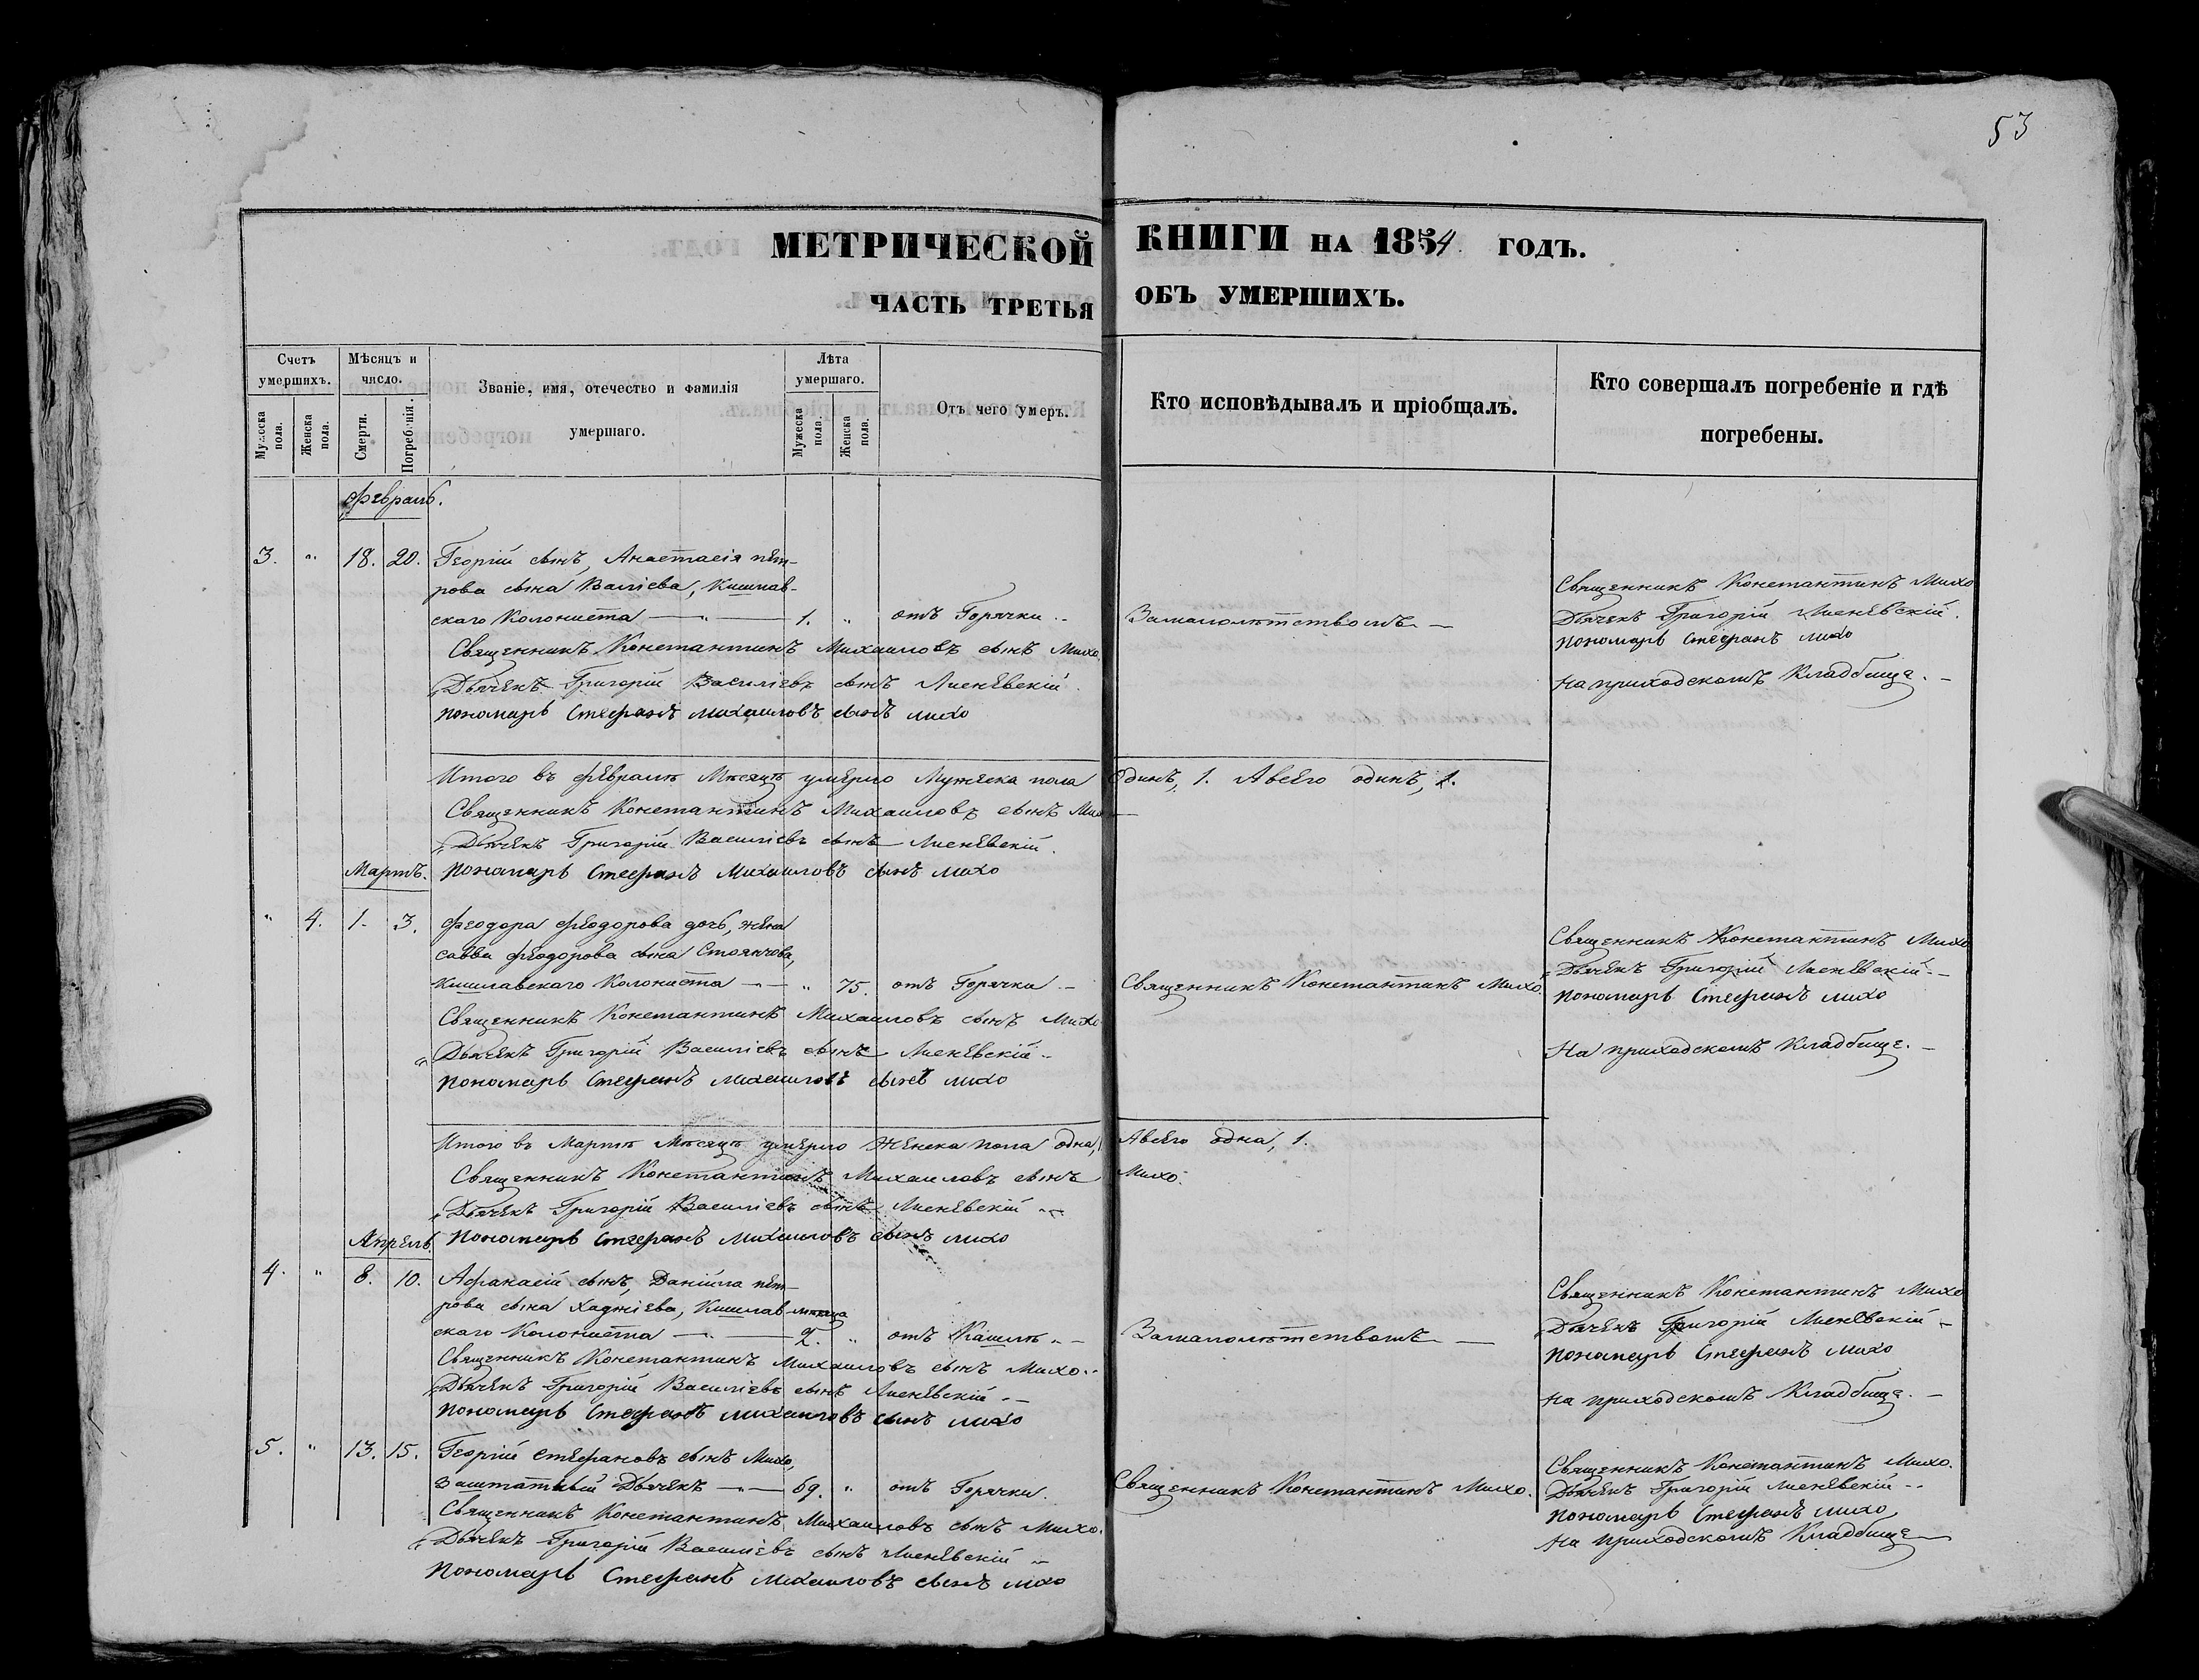 53
МЕТРИЧЕСКОЙ КНИГИ НА 1854 ГОДЪ.
ЧАСТЬ ТРЕТЬЯ ОБЪ УМЕРШИХЪ.
Счетъ умершихъ.
Мужеска пола.
Женска пола.
Мѣсяцъ и число.
Смерти.
Погребенія.
Званіе, имя, отечество и фамилія
умершаго.
Лѣта умершаго.
Мужеска пола.
Женска пола.
Отъ чего умеръ.
Кто исповѣдывалъ и пріобщалъ.
Кто совершалъ погребеніе и гдѣ
погребены.
Февраль.
3. " 18. 20. Георгій сынъ, Анастасія пет-
рова сына Валіева, Кишлав-
скаго Колониста — " — 1. " отъ Горячки
Замалолѣтствомъ —
Священникъ Константинъ Михаиловъ сынъ Михо.
Дьячекъ Григорій Василіевъ сынъ Лисневскій.
пономарь Стефанъ михаиловъ сынъ михо
Священникъ Константинъ Михо
Дьячекъ Григорій Лисневскій.
пономарь Стефанъ михо
На приходскомъ Кладбище. —
Итого въ февралѣ Мѣсяцѣ умерло Мужеска пола одинъ, 1. Авсего одинъ, 1.
Священникъ Константинъ Михаиловъ сынъ Михо
Дьячекъ Григорій Василіевъ сынъ Лисневскій.
пономарь Стефанъ Михаиловъ сынъ михо
Мартъ.
" 4. 1. 3. Феодора Феодорова дочь, жена
савви Феодорова сына Стоянчова,
Кишлавскаго Колониста — " 75. отъ Горячки —
Священникъ Константинъ Михо.
Священникъ Константинъ Михаиловъ сынъ Михо
Дьячекъ Григорій Василіевъ сынъ Лисневскій
пономарь Стефанъ михаиловъ сынъ михо
Священникъ Константинъ Михо
Дьячекъ Григорій Лисневскій
пономарь Стефанъ михо
На приходскомъ Кладбище. —
Итого въ Мартѣ Мѣсяцѣ умерло Женска пола одна, 1 Авсего одна, 1.
Священникъ Константинъ Михаиловъ сынъ Михо.
Дьячекъ Григорій Василіевъ сынъ Лисневскій
пономарь Стефанъ михаиловъ сынъ михо
Апрель
4. " 8. 10. Афанасій сынъ, Даніила пет-
рова сына хаджіева, Кишлав мѣсяца
скаго Колониста — " — 2. " отъ Кашля —
Замалолѣтствомъ —
Священникъ Константинъ Михаиловъ сынъ Михо.
Дьячекъ Григорій Василіевъ сынъ Лисневскій
пономарь Стефанъ михаиловъ сынъ михо
Священникъ Константинъ Михо
Дьячекъ Григорій Лисневскій
пономарь Стефанъ михо
на приходскомъ Кладбище. —
5. " 13. 15. Георгій стефановъ сынъ Михо,
заштатный Дьячекъ — " — 69. " отъ Горячки.
Священникъ Константинъ Михо.
Священникъ Константинъ Михаиловъ сынъ Михо.
Дьячекъ Григорій Василіевъ сынъ Лисневскій
пономарь Стефанъ михаиловъ сынъ михо
Священникъ Константинъ Михо.
Дьячекъ Григорій Лисневскій
пономарь Стефанъ михо
на приходскомъ Кладбище